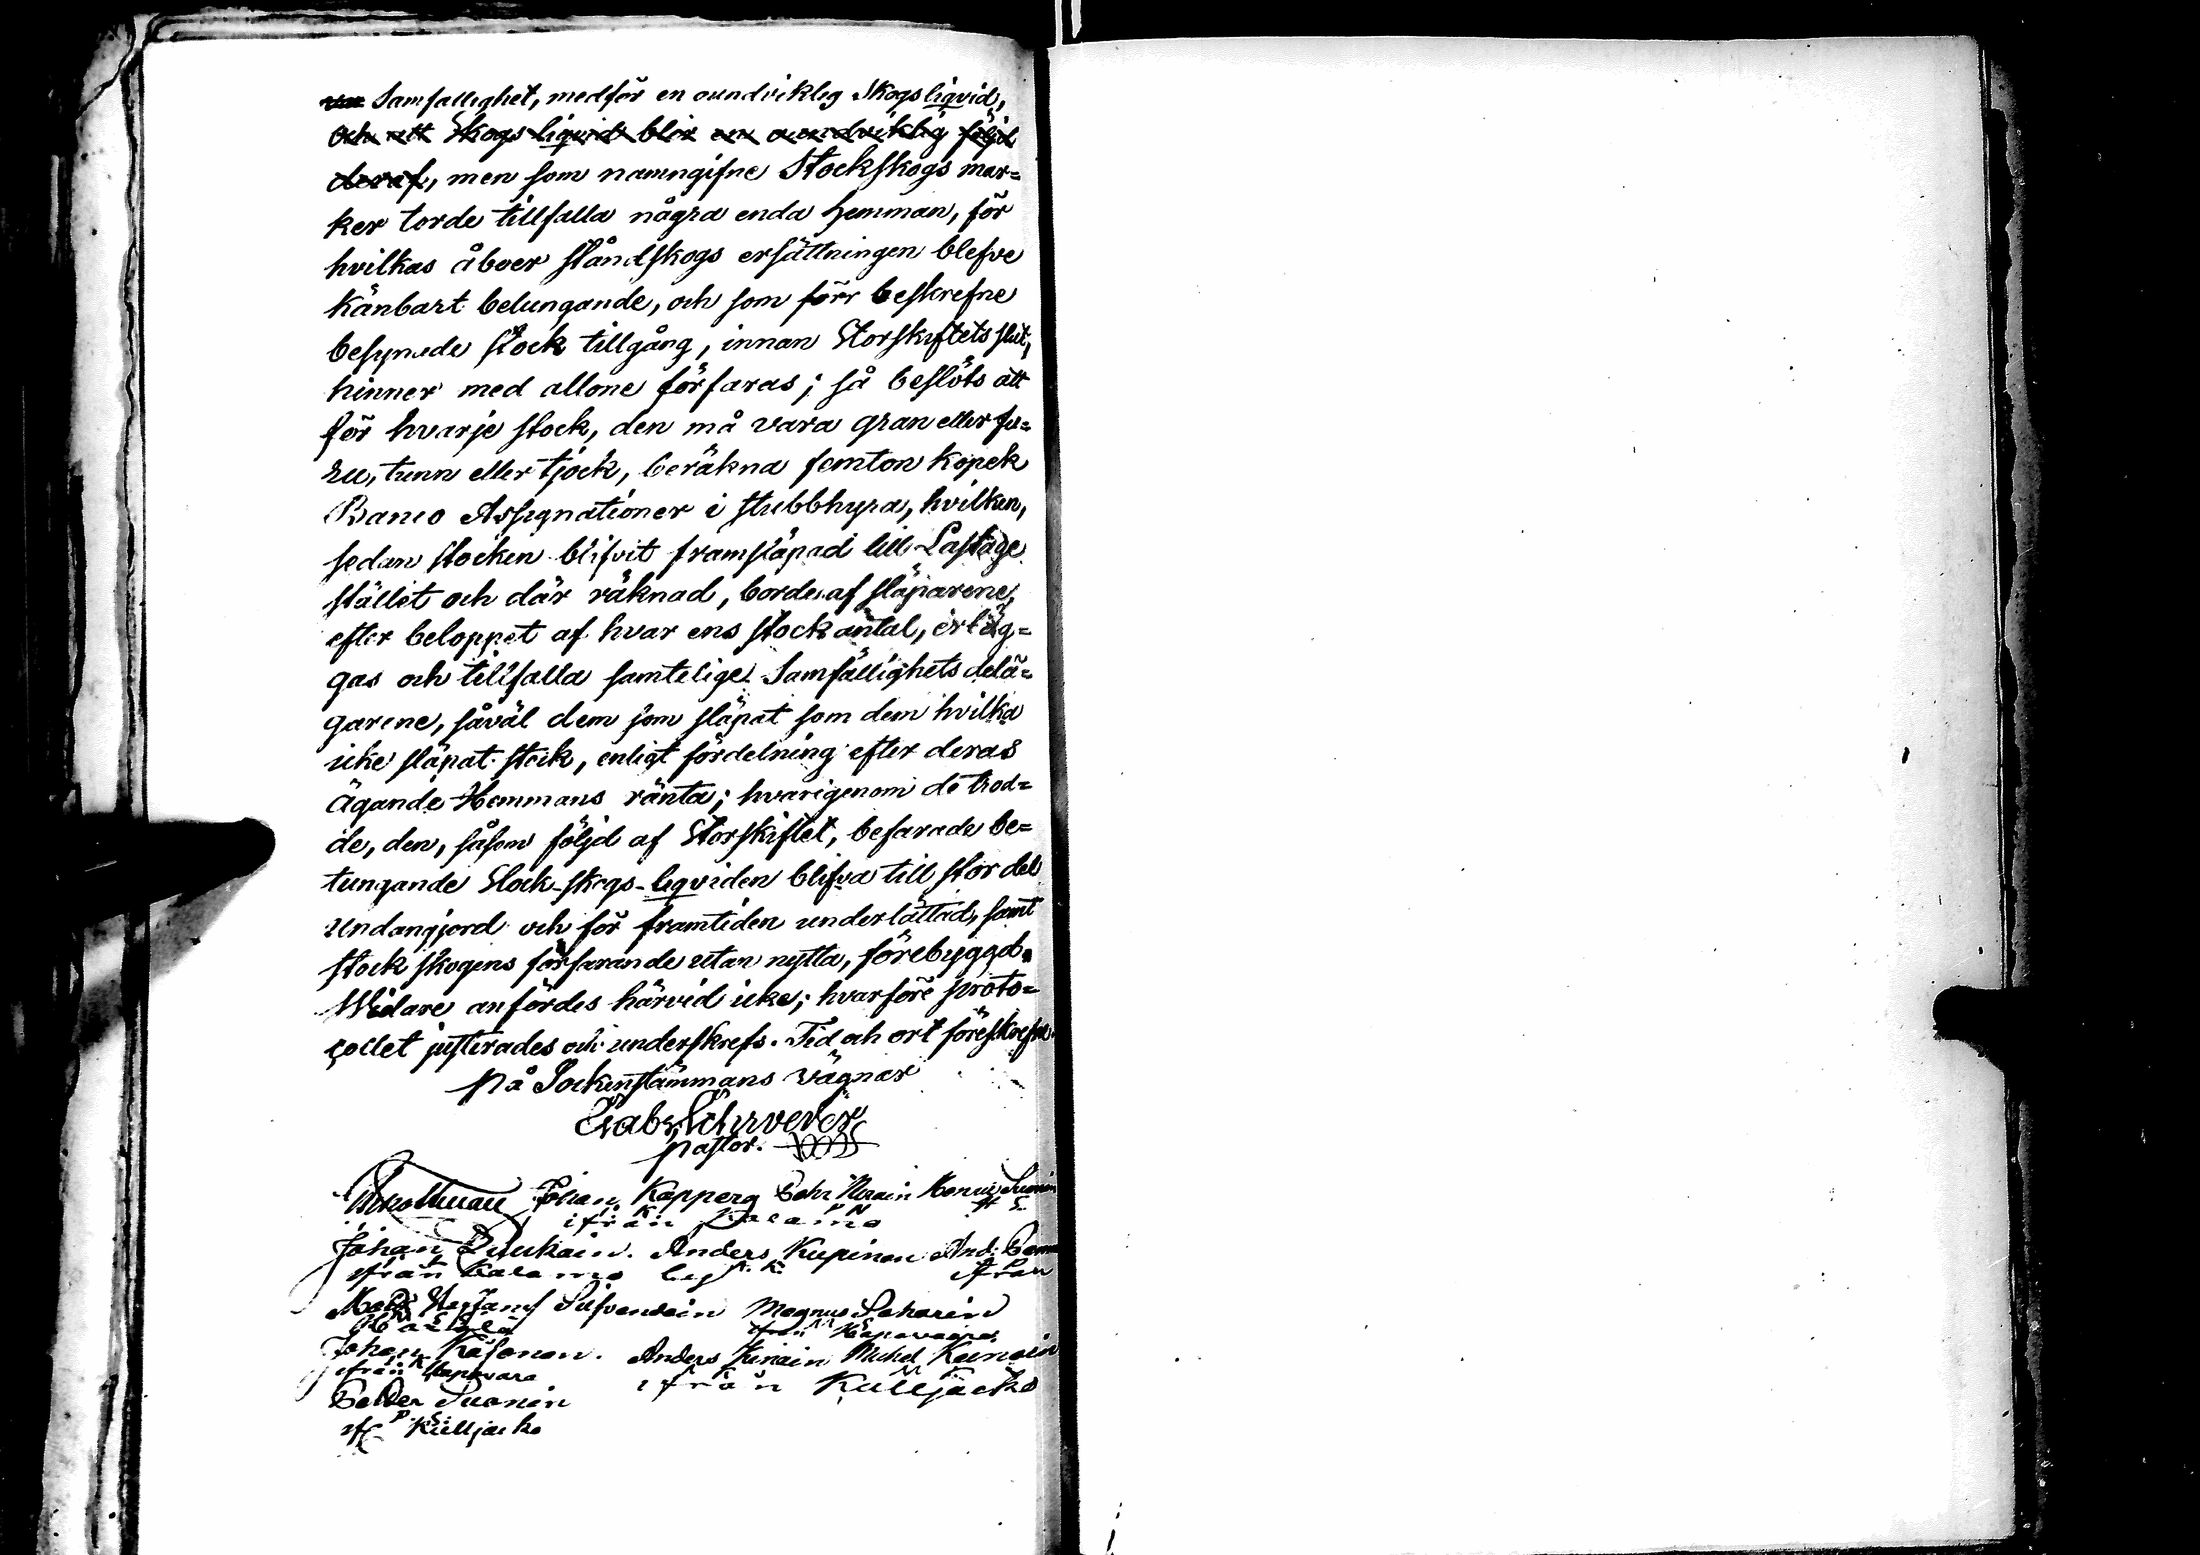 Samfällighet, medför en oundviklig Skogs liqvid,
och att Skogs liqvid blir en oundviklig följd
deraf, men som namngifne Stockskogs mar=
ker torde tillfalla några enda hemman, för
hvilkas åboer ståndskogs ersättningen blefve
känbart betungande, och som förr beskrefne
besynade stock tillgång, innan Storskiftets slut,
hinner med allone förfaras; så beslöts att
för hvarje stock, den må vara gran eller fu=
ru, tunn eller tjock, beräkna femton kopek
Banco Assignationer i stubbhyra, hvilken,
sedan stocken blifvit framsläpad till Lastage
stället och där räknad, borde af släparene,
efter beloppet af hvar ens stock antal, erläg=
gas och tillfalla samtelige Samfällighets delä=
garene, såväl dem som släpat som dem hvilka
icke släpat stock, enligt fördelning efter deras
ägande Hemmans ränta; hvarigenom de trod=
de, den, såsom följd af Storskiftet, befarade be=
tungande Stock-skogs-liqviden blifva till stor del
undangjord och för framtiden underlättad, samt
stock skogens förfarande utan nytta, förebyggd.
Widare anfördes härvid icke; hvarföre proto=
collet justerades och underskrefs. Tid och ort föreskrefne.
På Sockenstämmans vägnar
pastor.
Johan Kapperg
ifrån
Johan Anders Kupinen And:
ifrån
Magnus Saharin
Johan Käsonen. Anders Keinäin Michel Keinäin
ifrån ifrån Kulljacko
Petter Suonin
Kulljacko